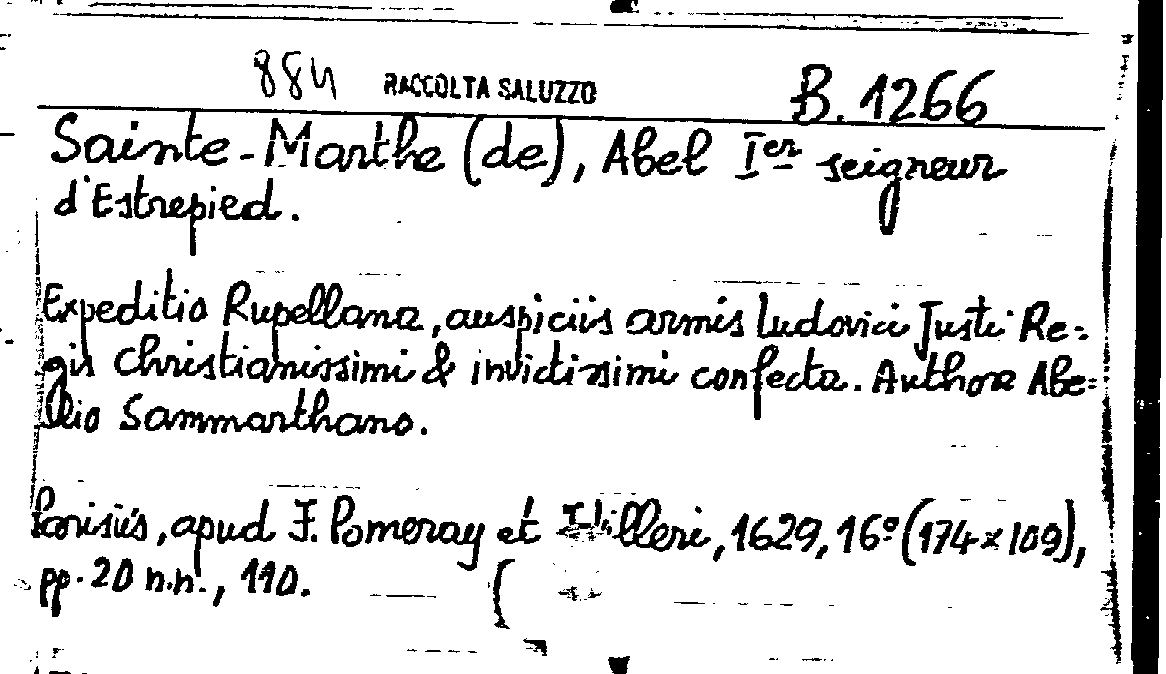 884 RACCOLTA SALUZZO B. 1266
Sainte-Marthe (de), Abel Ier seigneur
d'Estrepied.
Expeditio Rupellana, auspiciis armis Ludovici Justi Re=
gis Christianissimi & invictissimi confecta. Authore Abe=
llio Sammarthano.
Parisiis, apud J. Pomeray et
, 1629, 16º (174 x 109),
pp. 20 n.n., 110.